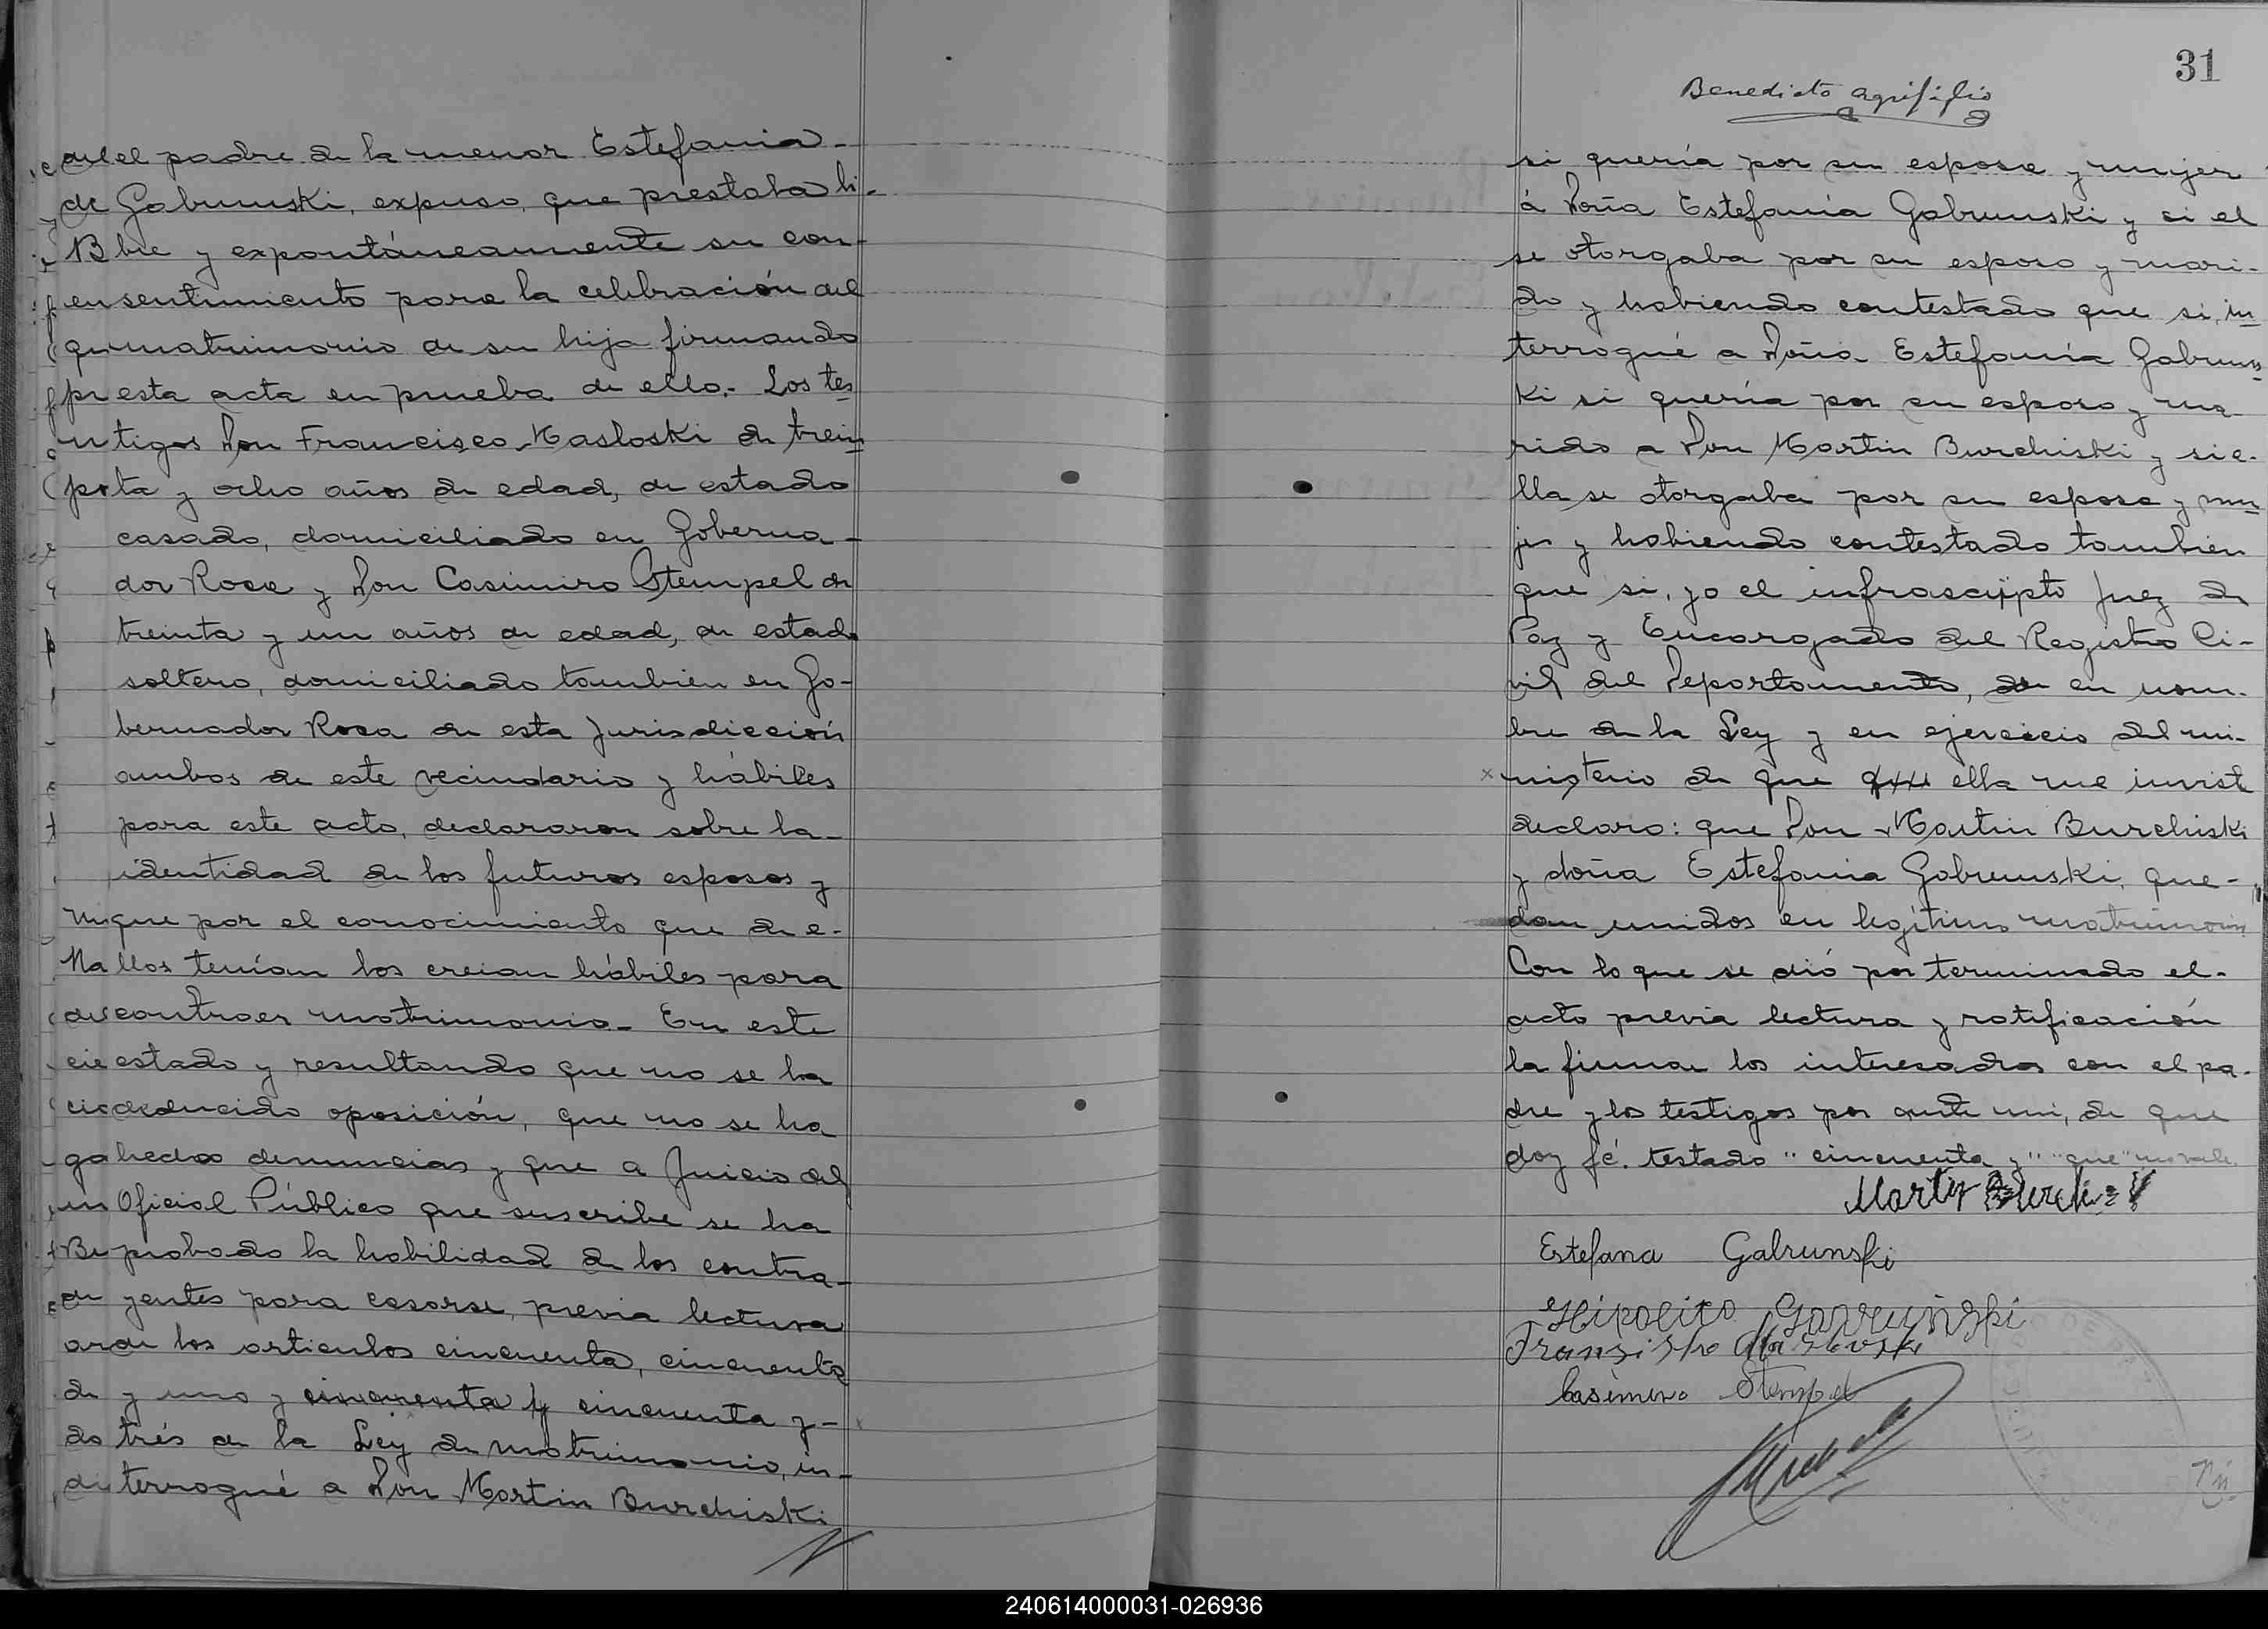 el padre de la menor Estefania
Gabrunski, expuso, que prestaba li-
bre y expontáneamente su con-
sentimiento para la celebración del
matrimonio de su hija firmando
esta acta en prueba de ello.- Los tes
tigos Don Francisco Masloski de trein
ta y ocho años de edad, de estado
casado, domiciliado en Goberna-
dor Roca y Don Casimiro Stempel de
treinta y un años de edad, de estado
soltero, domiciliado tambien en Go-
bernador Roca de esta Jurisdicción
ambos de este vecindario y hábiles
para este acto, declararon sobre la
identidad de los futuros esposos y
que por el conocimiento que de e-
llos tenían los creian hábiles para
contraer matrimonio.- En este
estado y resultando que no se ha
deducido oposición, que no se ha
hecho denuncias y que a Juicio del
Oficial Público que suscribe se ha
probado la habilidad de los contra-
yentes para casarse, previa lectura
de los articulos cincuenta, cincuenta
y uno y cincuenta y cincuenta y-
trés de la Ley de matrimonio, in-
terrogué a Don Martin Burchiski
31
Benedicto Agrifilio
si quería por su esposa y mujer
á Doña Estefanía Gabrunski y si el
se otorgaba por su esposo y mari-
do y habiendo contestado que si, in
terrogué a Doña Estefanía Gabruns
ki si quería por su esposo y ma
rido a Don Martin Burchiski y si e-
lla se otorgaba por su esposa y mu
jer y habiendo contestado tambien
que si, yo el infrascripto Juez de
Paz y Encargado del Registro Ci-
vil del Departamento, en nom-
bre de la Ley y en ejercicio del mi-
nisterio de que ella me inviste
declaro: que Don Martin Burchiski
y doña Estefania Gabrunski, que-
dan unidos en legítimo matrimonio
Con lo que se dió por terminado el-
acto previa lectura y ratificación
la firman los interesados con el pa-
dre y los testigos por ante mi, de que
doy fé. testado "cincuenta y" "que" no vale.
Martin
Estefana Gabrunski
Hipolito Gabrunski
Fransisko Masloski
Casimiro Stempel
240614000031-026936